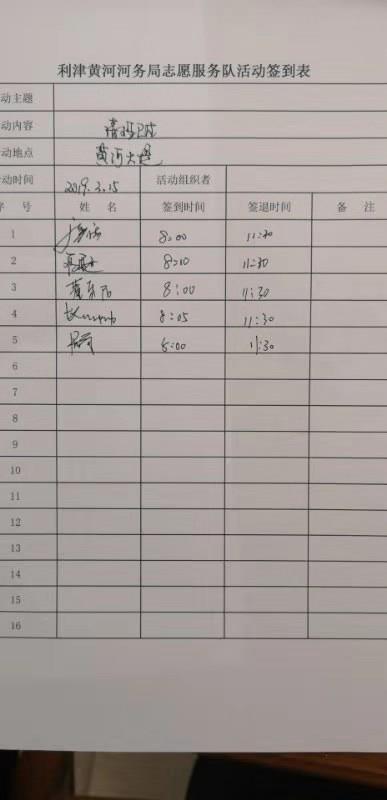 利津黄河河务局志愿服务队活动签到表
动主题
动内容 清扫卫生
动地点 黄河大堤
动时间 2019.3.15 活动组织者
序 号 姓 名 签到时间 签退时间 备 注
1 8:00 11:30
2 8:10 11:30
3 8:00 11:30
4 8:05 11:30
5 8:00 11:30
6
7
8
9
10
11
12
13
14
15
16